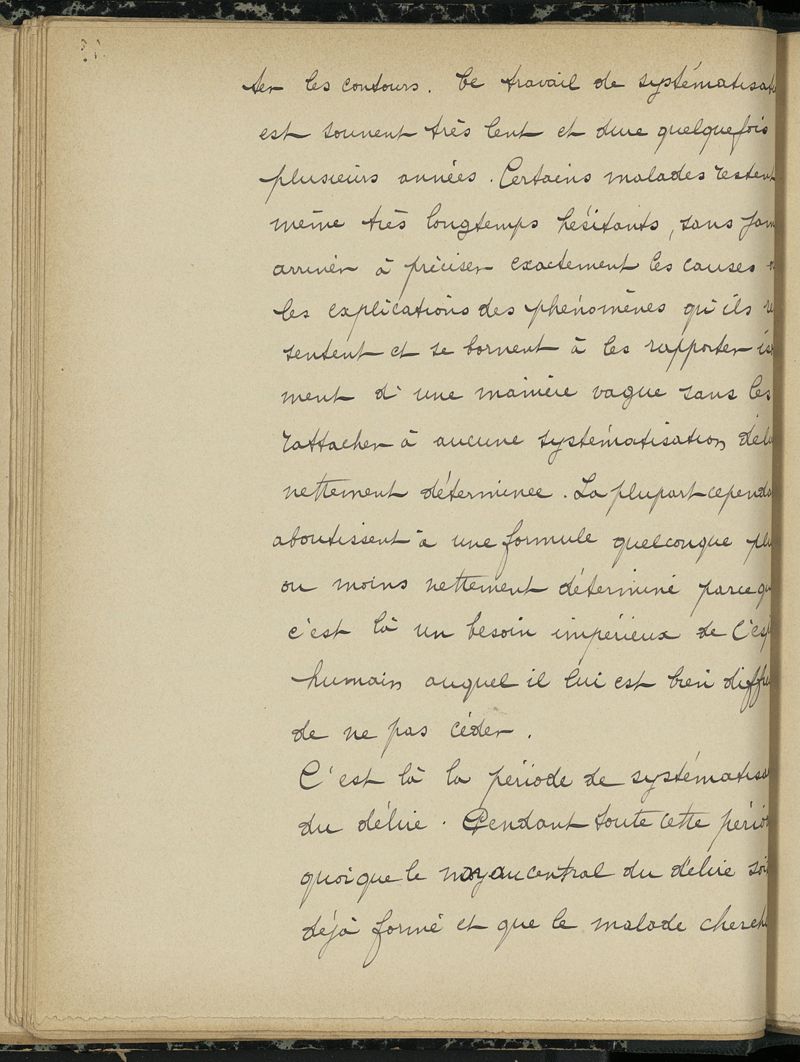 ter les contours. Ce travail de systématisat
est souvent très lent et dure quelquefois
plusieurs années. Certains malades restent
même très longtemps hésitants, sans jam
arriver à préciser exactement les causes
les explications des phénomènes qu'ils re
sentent et se bornent à les rapporter
ment d'une manière vague sans les
rattacher à aucune systématisation déli
nettement déterminée. La plupart cependa
aboutissent à une formule quelconque plu
ou moins nettement déterminé parce qu
c'est là un besoin impérieux de l'esp
humain auquel il lui est bien diffi
de ne pas céder.
C'est là la période de systématisa
du délire. Pendant toute cette périod
quoique le noyau central du délire soi
déjà formé et que le malade cherch